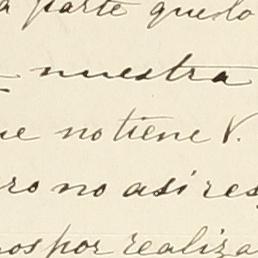 a parte que lo
nuestra
ue no tiene V.
ro no asi res
nos por realiza